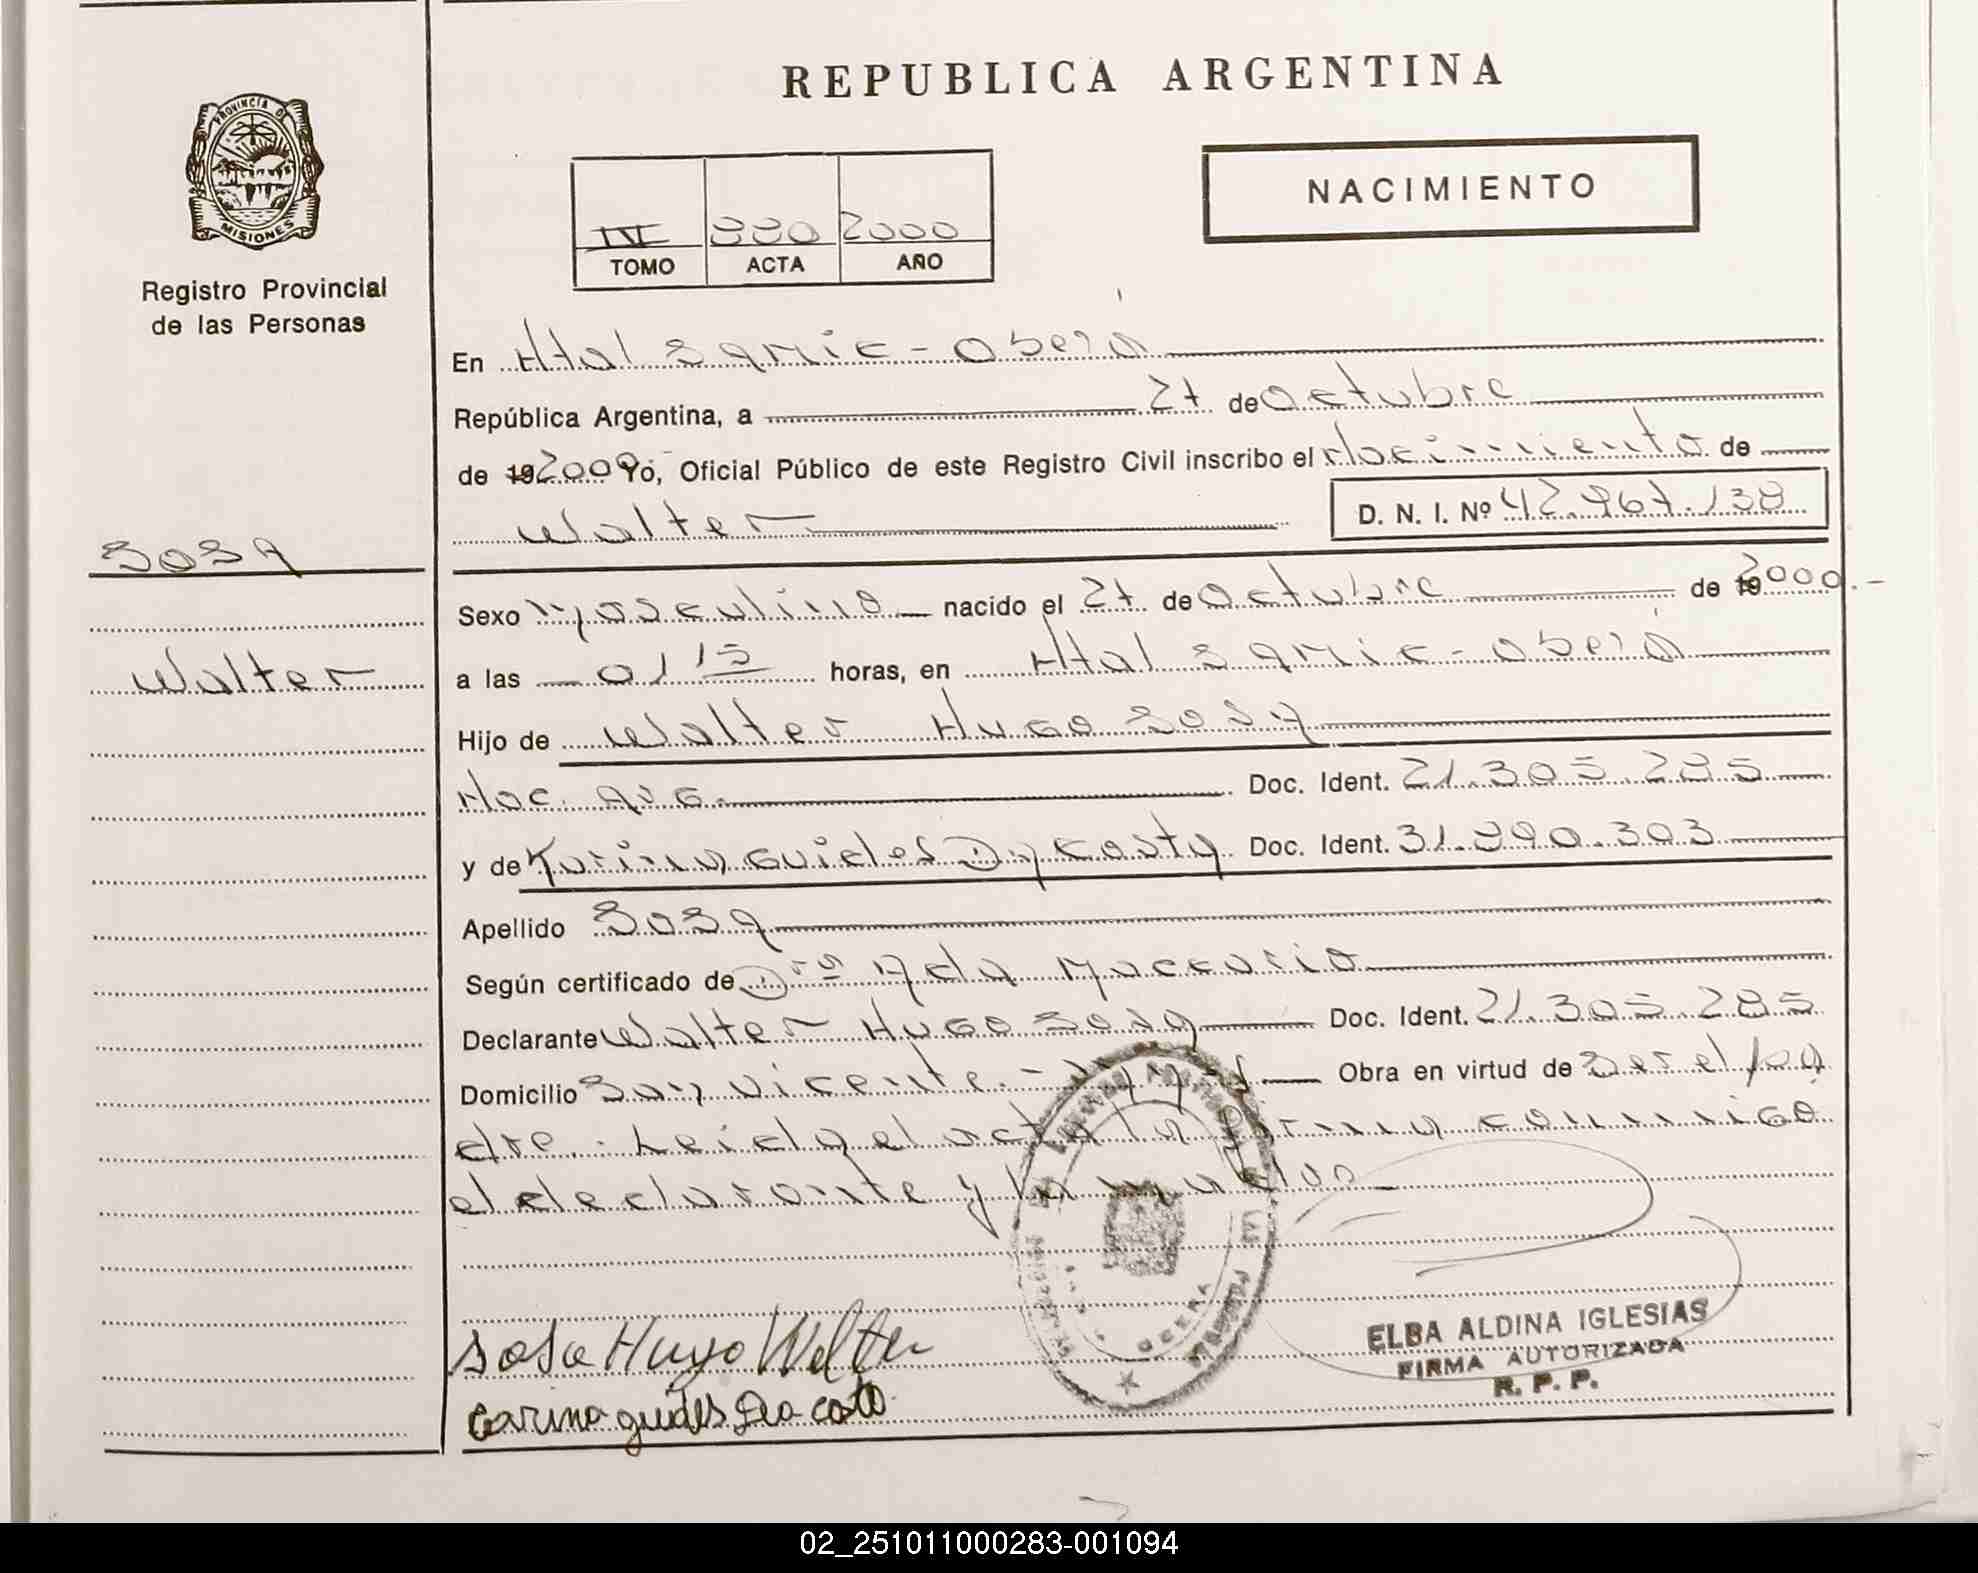 REPUBLICA ARGENTINA
PROVINCIA DE
MISIONES
Registro Provincial
de las Personas
III 330 2000
TOMO ACTA AÑO
NACIMIENTO
En Htal Samic - Oberá
República Argentina, a 27 de Octubre
de 192000 Yo, Oficial Público de este Registro Civil inscribo el Nacimiento de
Walter
D. N. I. Nº 42.967.138
Sosa
Walter
Sexo Masculino nacido el 27 de Octubre de 192000.-
a las 01 15 horas, en Htal Samic - Oberá
Hijo de Walter Hugo Sosa
Nac. Arg. Doc. Ident. 21.305.285
y de Karina Guides Da Costa Doc. Ident. 31.390.303
Apellido Sosa
Según certificado de Dra Ada Maccario
Declarante Walter Hugo Sosa Doc. Ident. 21.305.285
Domicilio San Vicente.- Obra en virtud de Ser el pa
dre. Leida el acta la firma conmigo
el declarante y la madre
Sosa Hugo Walter
Carina guides Da costa
ELBA ALDINA IGLESIAS
FIRMA AUTORIZADA
R. P. P.
02_251011000283-001094